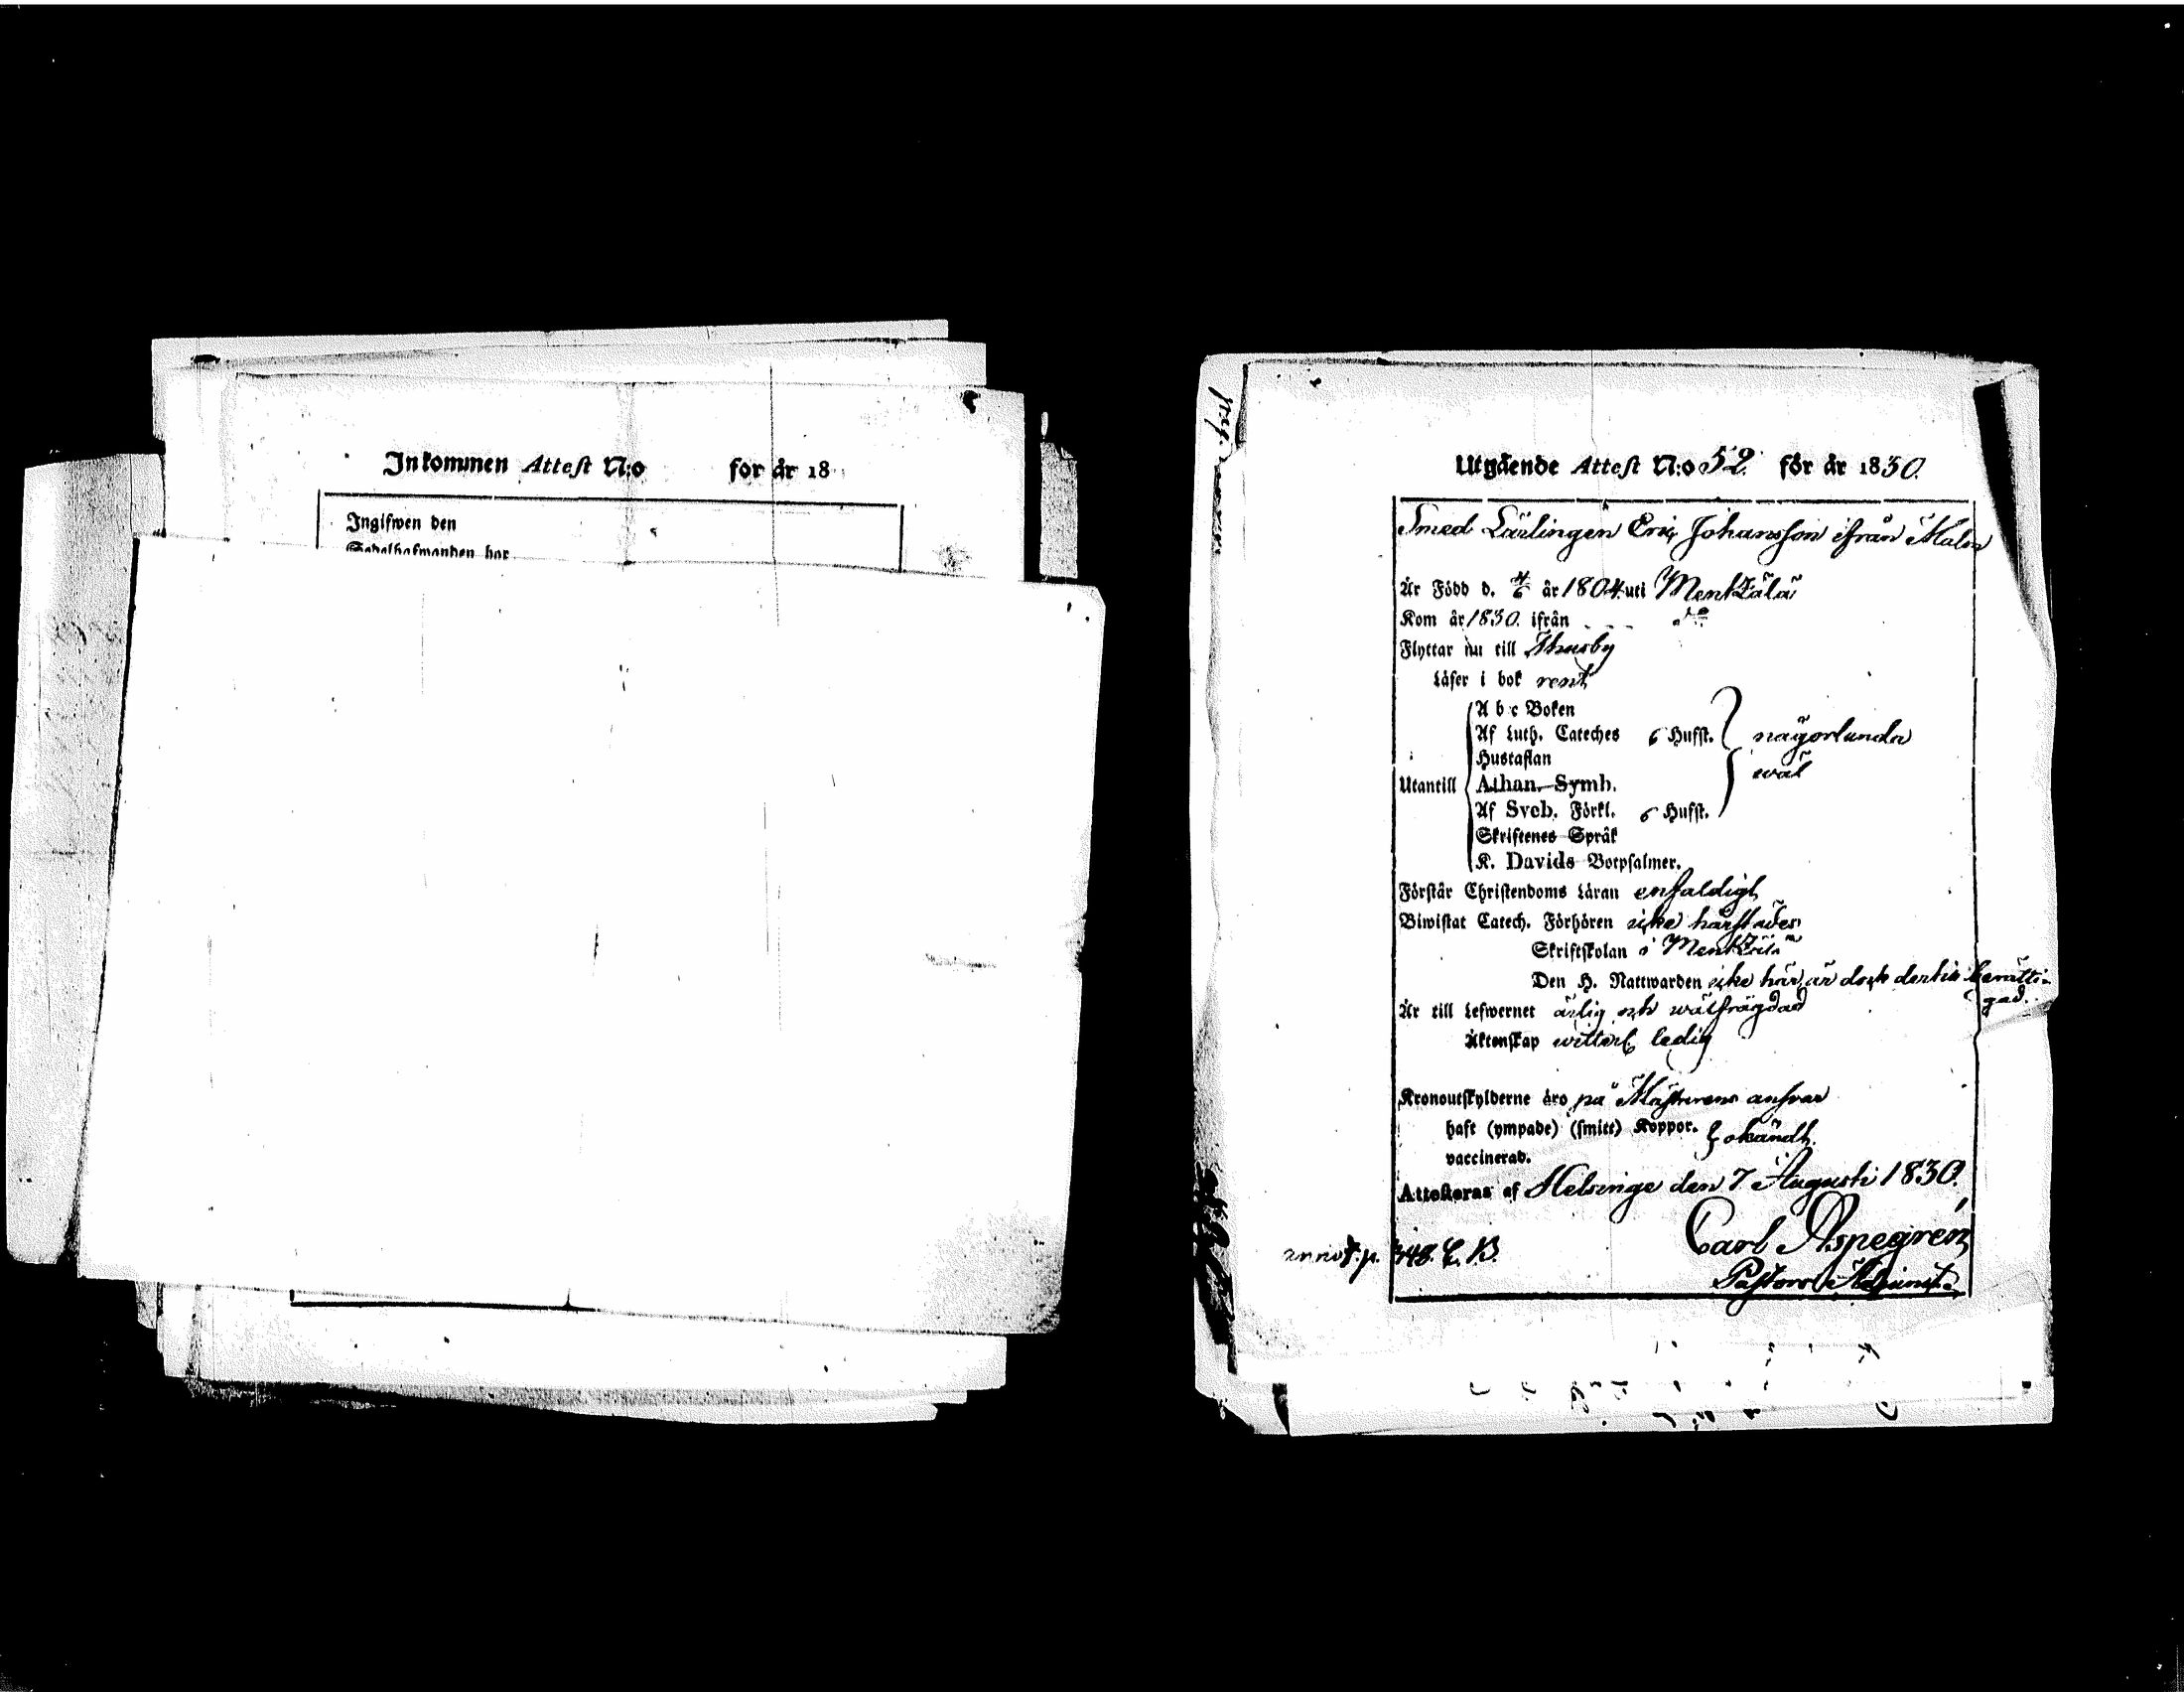 Inkommen Attest N:o for år 18
Ingifwen den
Sedelhafwanden har
Utgående Attest N:o 52. för år 1830.
Smed Lärlingen Eric Johansson ifrån Malm
Är Född d. 4/6 år 1804 uti Mentzälä
Kom år 1830. ifrån - - - d:o
Flyttar nu till Thusby
Läser i bok rent
A b c Boken
Af Luth. Cateches 6 Hufst. någorlunda
Hustaflan
wäl
Utantill Athan. Symb.
Af Sveb. Förkl. 6 Hufst.
Skriftenes Språk
K. Davids Botpsalmer.
Förstår Christendoms Läran enfaldigt
Biwistat Catech. Förhören icke härstädes
Skriftskolan i Mentzälä
Den H. Nattwarden icke här, är dock dertill berätti-
gad.
Är till Lefwernet ärlig och wälfrägdad
Äktenskap witterl. ledig
Kronoutskylderne äro på Mästarens answar
haft (ympade) (smitt) Koppor. okändt.
vaccinerad.
Attesteras af Helsinge den 7 Augusti 1830.
Carl Aspegrén
annot. p. 348. C. B.
Pastors Adjunct.